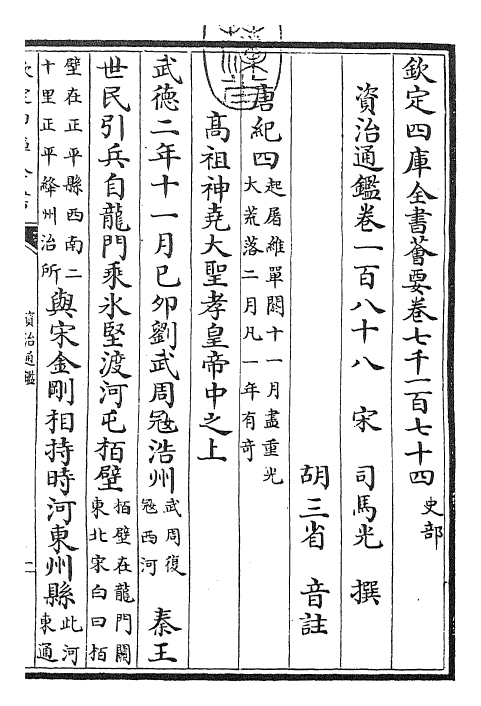 欽定四庫全書薈要卷七千一百七十四 史部
資治通鑑卷一百八十八 宋 司馬光 撰
胡三省 音註
唐紀四 起屠維單閼十一月盡重光大荒落二月凡一年有奇
髙祖神堯大聖孝皇帝中之上
武德二年十一月己夘劉武周冦浩州 武周復冦西河 秦王
世民引兵自龍門乗氷堅渡河屯栢壁 栢壁在龍門關東北宋白曰栢
壁在正平縣西南二十里正平絳州治所 與宋金剛相持時河東州縣 此河東通
資治通鑑